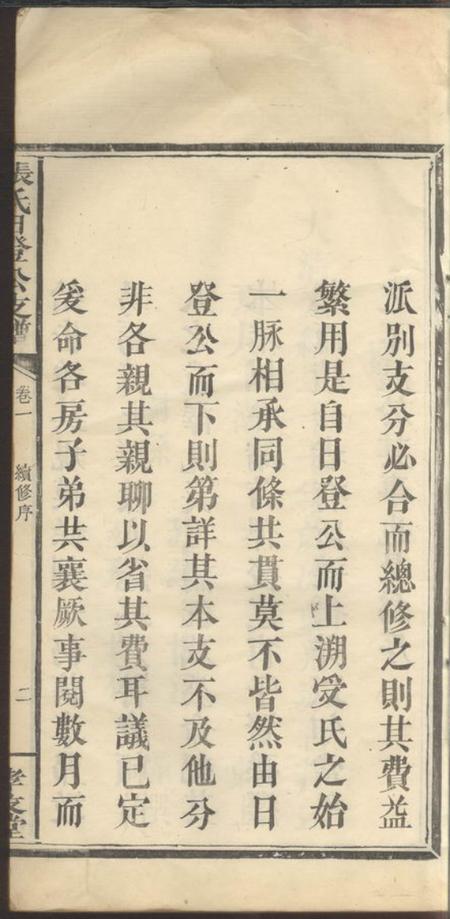 派别支分必合而總修之則其費益
繁用是自日登公而上溯受氏之始
一脉相承同條共貫莫不皆然由日
登公而下則第詳其本支不及他分
非各親其親聊以省其費耳議已定
爰命各房子弟共襄厥事閱數月而
張氏日登公支譜
卷一
續修序
二
孝友堂